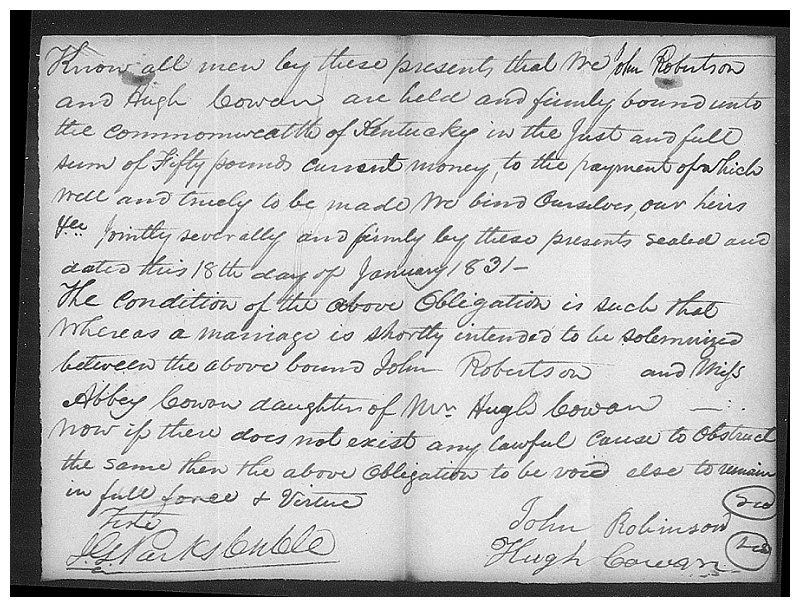 Know all men by these presents that We John Robertson
and Hugh Cowan are held and firmly bound unto
the commonwealth of Kentucky in the Just and full
sum of Fifty pounds current money, to the payment of which
well and truely to be made We bind Ourselves, our heirs
&cc Jointly severally and firmly by these presents sealed and
dated this 18th day of January 1831-
The condition of the above Obligation is such that
Whereas a marriage is shortly intended to be solemnized
between the above bound John Robertson and Miss
Abbey Cowan daughter of Mr. Hugh Cowan —.
Now if there does not exist any lawful cause to Obstruct
the same then the above Obligation to be void else to remain
in full force & Virtue
Teste
John Robinson
J. G. Parks
Hugh Cowan